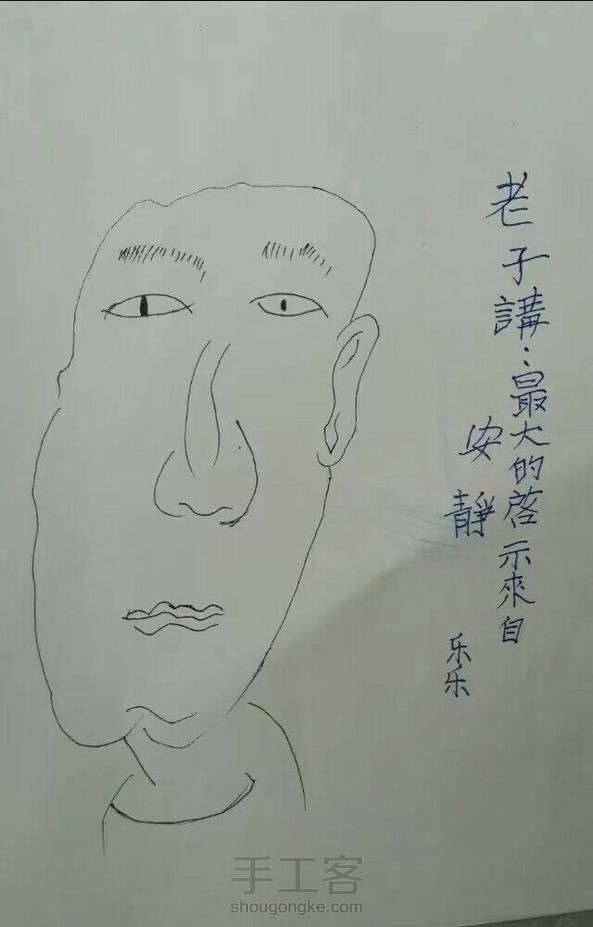 老子講：最大的啓示來自
安靜
乐乐
手工客
shougongke.com